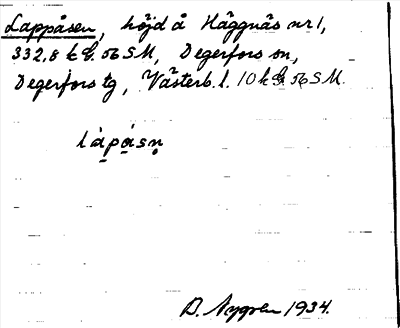 Lappåsen, höjd å Häggnäs nr 1,
332,8 k bl. 56 SM, Degerfors sn,
Degerfors tg, Västerb. l. 10 k bl 56 SM.
làpåsn̥
D. Nygren 1934.